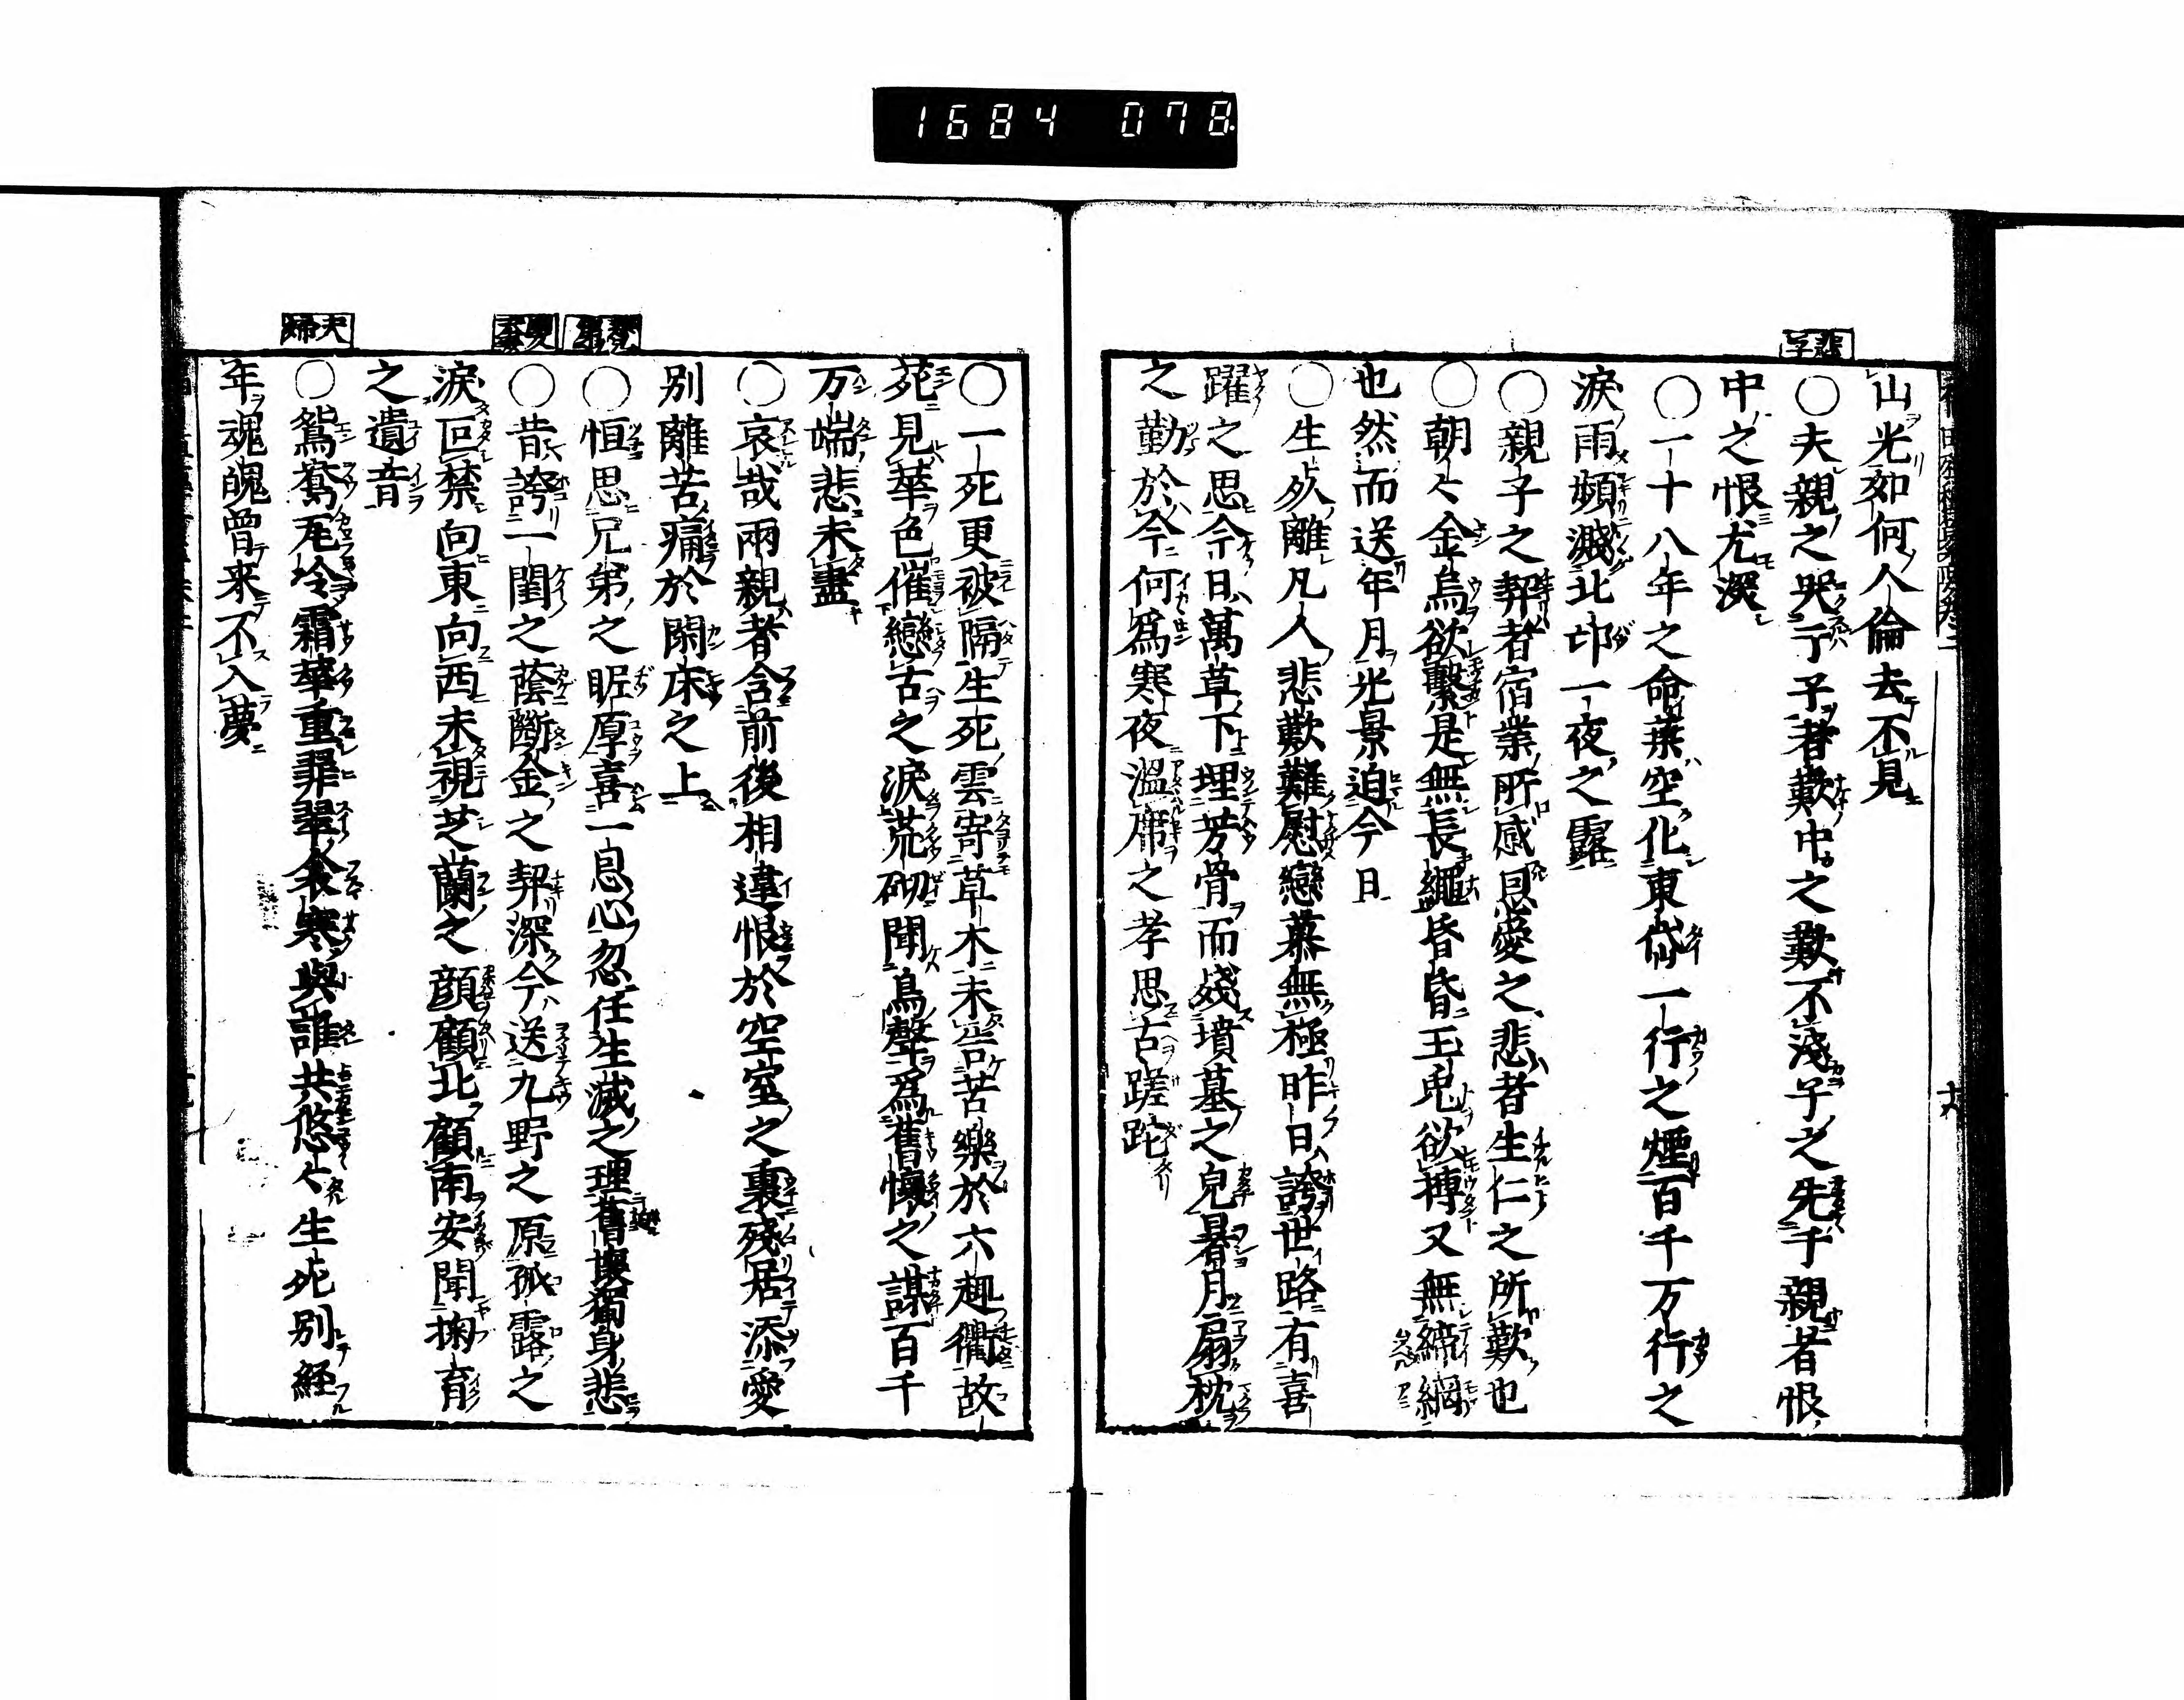 1684 078
山光如何人倫去不見
○夫親之哭子者歎中之歎不淺子之先于親者恨
中之恨尤深
○一十八年之命葉空化東岱一行之煙百千万行之
淚雨頻濺北邙一夜之露
○親子之契者宿業所感恩愛之悲者生仁之所歎也
○朝々金烏欲繫是無長繩昏昏玉兎欲摶又無締網
也然而送年月光景迫今日
○生死離凡人悲歎難慰戀慕無極昨日誇世路有喜
躍之思今日萬草下埋芳骨而殘墳墓之皃暑月扇枕
之勤於今何爲寒夜溫席之孝思古蹉跎
○一死更被隔生死雲寄草木未告苦樂於六趣衢故
苑見華色催戀古之淚荒砌聞鳥聲爲舊懷之謀百千
万端悲未盡
○哀哉兩親者含前後相違恨於空室之裏殘居添愛
別離苦痛於閑床之上
兄弟
○恒思兄弟之昵厚喜一息心忽任生滅之理獨身悲
○昔誇一閨之蔭斷金之契深今送九野之原孤露之
淚叵禁向東向西未視芝蘭之顔顧北顧南安聞掬育
之遺音
夫婦
○鴛鴦瓦冷霜華重翡翠衾寒與誰共悠々生死別経
年魂魄曾来不入夢